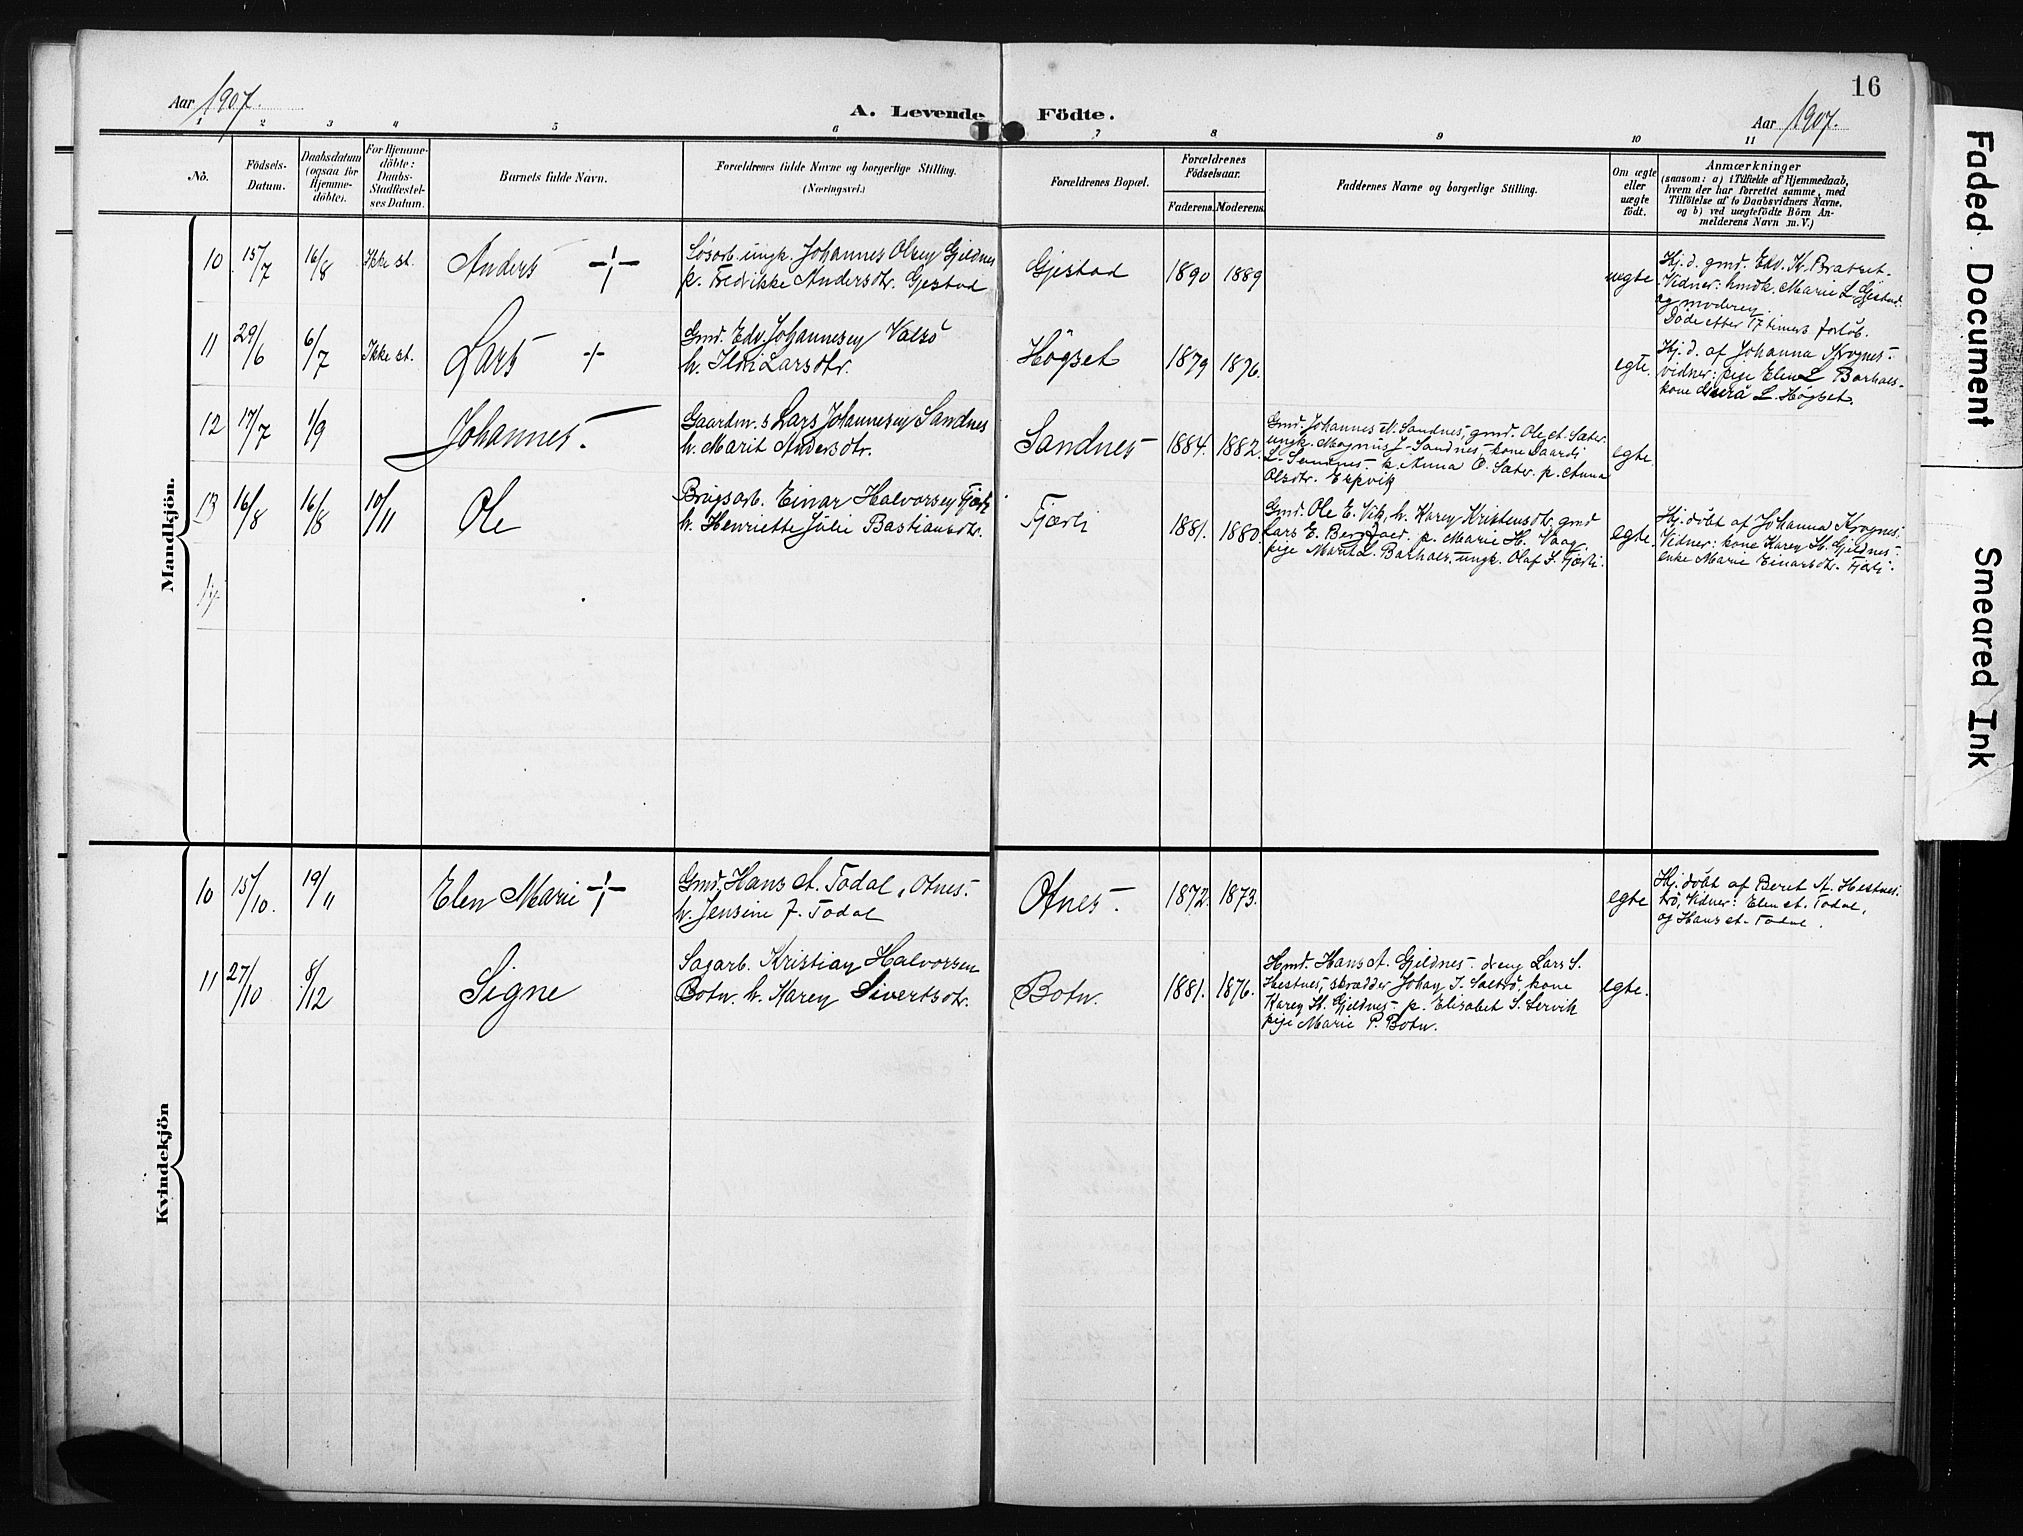 16
Aar 1907.
A. Levende Födte.
Aar 1907.
1 2 3 4 5 6 7 8 9 10 11
Nò.
Födsels-
Datum.
Daabsdatum
(ogsaa for
Hjemme-
döbte).
For Hjemme-
döbte:
Daabs-
Stadfæstel-
ses Datum.
Barnets fulde Navn.
Forældrenes fulde Navne og borgerlige Stilling.
(Næringsvei.)
Forældrenes Bopæl.
Forældrenes
Födselsaar.
Faderens. Moderens.
Faddernes Navne og borgerlige Stilling.
Om ægte
eller
uægte
födt.
Anmærkninger
(saasom: a) i Tilfælde af Hjemmedaab,
hvem der har forrettet samme, med
Tilföielse af to Daabsvidners Navne,
og b) ved uægtefödte Börn An-
melderens Navn m. V.)
Mandkjön.
10 15/7 16/8 Ikke st. Anders
Løsarb. ungk. Johannes Olsen Gjeldnes
p. Fredrikke Andersdtr. Gjestad
Gjestad 1890 1889
uegte
Hj. d. gmd. Edv. K. Bratset.
Vidner: hmdk. Marie L Gjestad
og moderen.
Døde efter 17 timers forløb.
11 29/6 6/7 Ikke st. Lars +
Gmd. Edv. Johannesen Valsø
h. Ildri Larsdtr.
Høgset 1879 1876.
egte.
Hj. d. af Johanna Krognes-
vidner: pige Elen L Barhals-
kone L. Høgset.
12 17/7 1/9 Johannes.
Gaardm. s Lars Johannesen Sandnes
h. Marit Andersdtr.
Sandnes 1884. 1882.
Gmd. Johannes A. Sandnes, gmd. Ole A. Sæter
ungk. Magnus J. Sandnes, kone
L. Sandnes. p. Anna O. Sæter. p. Anna
Olsdtr. Espvik
egte.
13 16/8 16/8 10/11 Ole
Brugsarb. Einar Halvorsen Fjærli
h. Henriette Julie Bastiansdtr.
Fjærli 1881. 1880.
Gmd. Ole E. Vik, h. Karen Kristensdtr. gmd
Lars E. p. Marie H. Vaag
pige Marit L. Barhals. ungk. Olaf S. Fjærli.
egte.
Hj. døbt af Johanna Krognes.
Vidner: kone Karen H. Gjeldnes-
enke Marie Einarsdtr. Fjærli.
14
Kvindekjön
10 15/10. 19/11 Elen Marie
Gmd. Hans A. Todal, Otnes.
h. Jensine J. Todal
Otnes. 1872. 1873.
egte
Hj. døbt af Beret A. Hestnes-
trø, Vidner: Elen A. Todal,
og Hans A. Todal.
11 27/10 8/12 Signe
Sagarb. Kristian Halvorsen
Botn. h. Karen Sivertsdtr.
Botn. 1881. 1876.
Hmd. Hans A. Gjeldnes. dreng Lars S.
Hestnes, skrædder Johan I. Saltrø, kone
Karen H. Gjeldnes. p. Elisabet S. Lervik
pige Marie P. Botn.
egte.
Faded Document
Smeared Ink